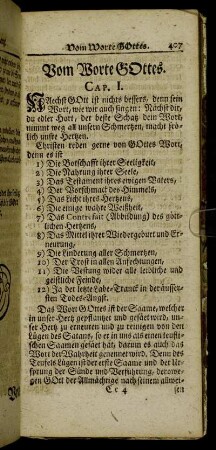 Vom Worte GOttes. 407
Vom Worte GOttes.
CAP. I.
NAechst GOtt ist nichts bessers, denn sein
Wort, wie wir auch singen: Nächst dir,
du edler Hort, der beste Schatz dein Wort,
nimmt weg all unsern Schmertzen, macht frö-
lich unsre Hertzen.
Christen reden gerne von GOttes Wort,
denn es ist
1) Die Botschafft ihrer Seeligkeit,
2) Die Nahrung ihrer Seele,
3) Das Testament ihres ewigen Vaters,
4) Der Vorschmack des Himmels,
5) Das Licht ihres Hertzens,
6) Die einige wahre Weißheit,
7) Das Contrefait (Abbildung) des gött-
lichen Hertzens,
8) Das Mittel ihrer Wiedergeburt und Er-
neurung,
9) Die Linderung aller Schmertzen,
10) Der Trost in allen Anfechtungen,
11) Die Vestung wider alle leibliche und
geistliche Feinde,
12) Ja der letzte Labe-Tranck in der äusser-
sten Todes-Angst.
Das Wort GOttes ist der Saame, welcher
in unser Hertz gepflantzet und gesäet wird, un-
ser Hertz zu erneuren und zu reinigen von den
Lügen des Satans, so er in uns als einen treuf-
Saamen gesäet hat, darum es auch das
Wort der Wahrheit genennet wird. Denn des
Teufels Lügen ist der erste Saame und der Ur-
sprung der Sünde und Verführung, derowe-
gen GOtt der Allmächtige nach seinem allwei-
Cc 4 sen